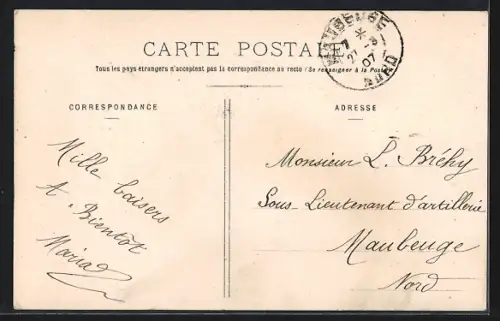 CARTE POSTALE
Tous les pays étrangers n'acceptent pas la correspondance au recto (Se renseigner à la Poste)
CORRESPONDANCE
Mille baisers
A Bientôt
Maria
ADRESSE
Monsieur L. Bréhy
Sous-Lieutenant d'artillerie
Maubeuge
Nord
MAUBEUGE
07
NORD